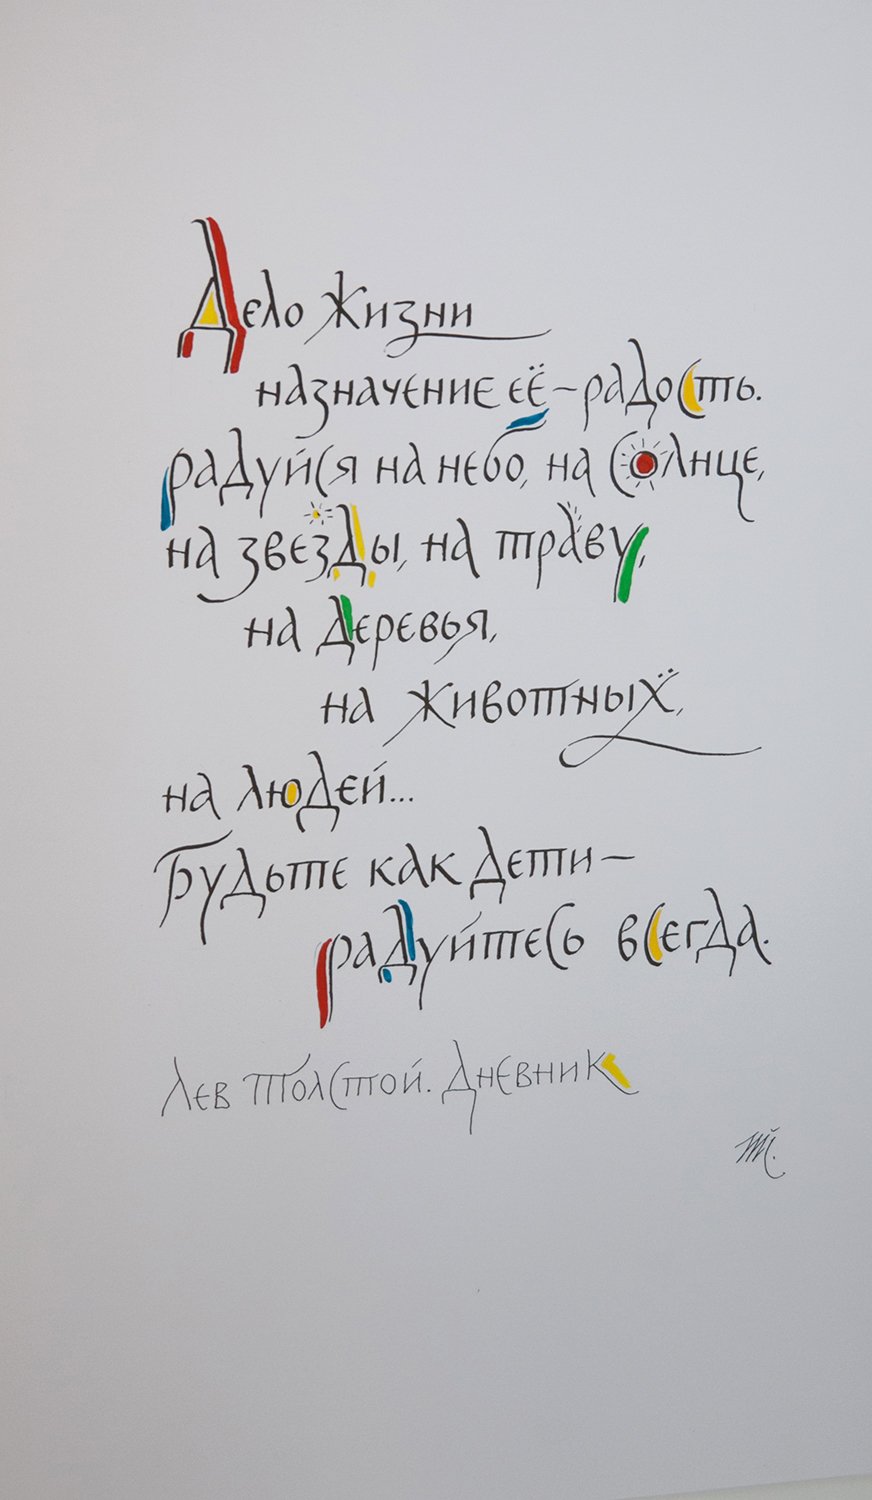 Дело жизни
назначение её – радость.
радуйся на небо, на солнце,
на звезды, на траву,
на деревья,
на животных,
на людей...
Будьте как дети –
радуйтесь всегда.
Лев Толстой. Дневник